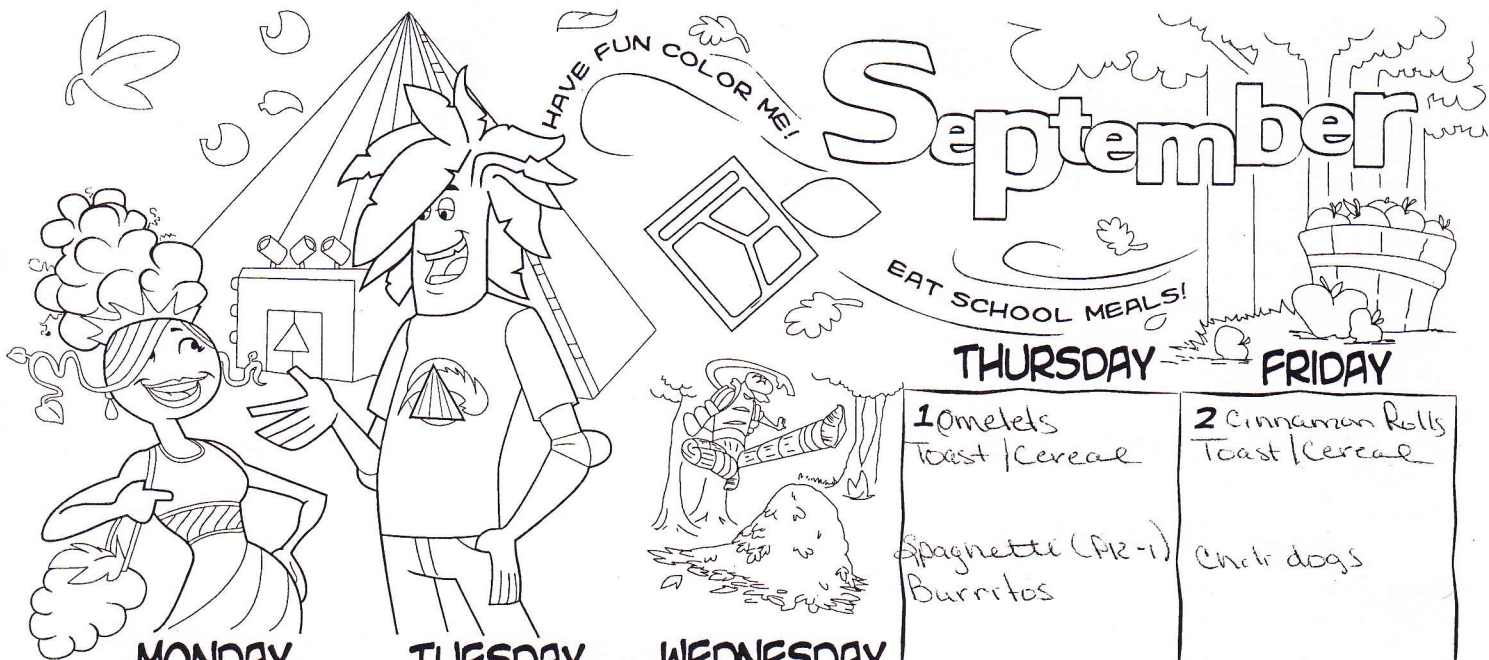 HAVE FUN COLOR ME!
September
EAT SCHOOL MEALS!
THURSDAY
FRIDAY
1 Omelets
Toast / Cereal
Spaghetti (PK-1)
Burritos
2 Cinnamon Rolls
Toast / Cereal
Chili dogs
MONDAY
TUESDAY
WEDNESDAY